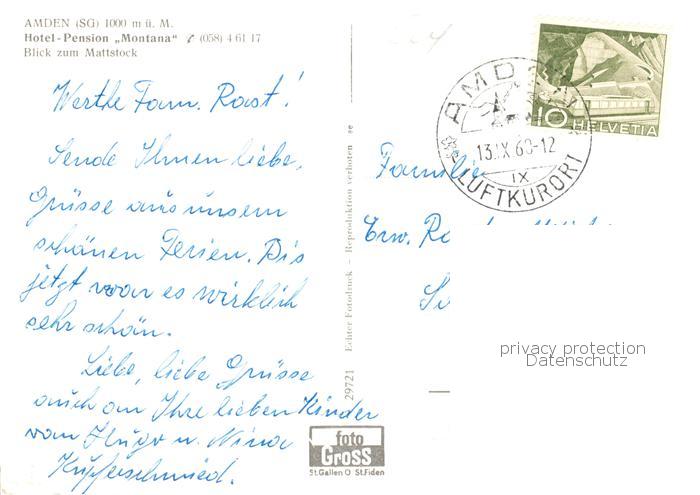 AMDEN (SG) 1000 m ü. M.
Hotel-Pension „Montana“ ✆ (058) 4 61 17
Blick zum Mattstock
Werthe Fam. Rast!
Sende Ihnen liebe,
Grüsse aus unsern
schönen Ferien. Bis
jetzt war es wirklich
sehr schön.
Liebe, liebe Grüsse
auch an Ihre lieben Kinder
von Hugo u. Nina
Kupferschmied.
29721 Echter Fotodruck - Reproduktion verboten
foto
GROSS
St.Gallen O St.Fiden
10
HELVETIA
AMDEN
13.IX 60-12
IX
LUFTKURORT
Familie
Erw.
privacy protection
Datenschutz